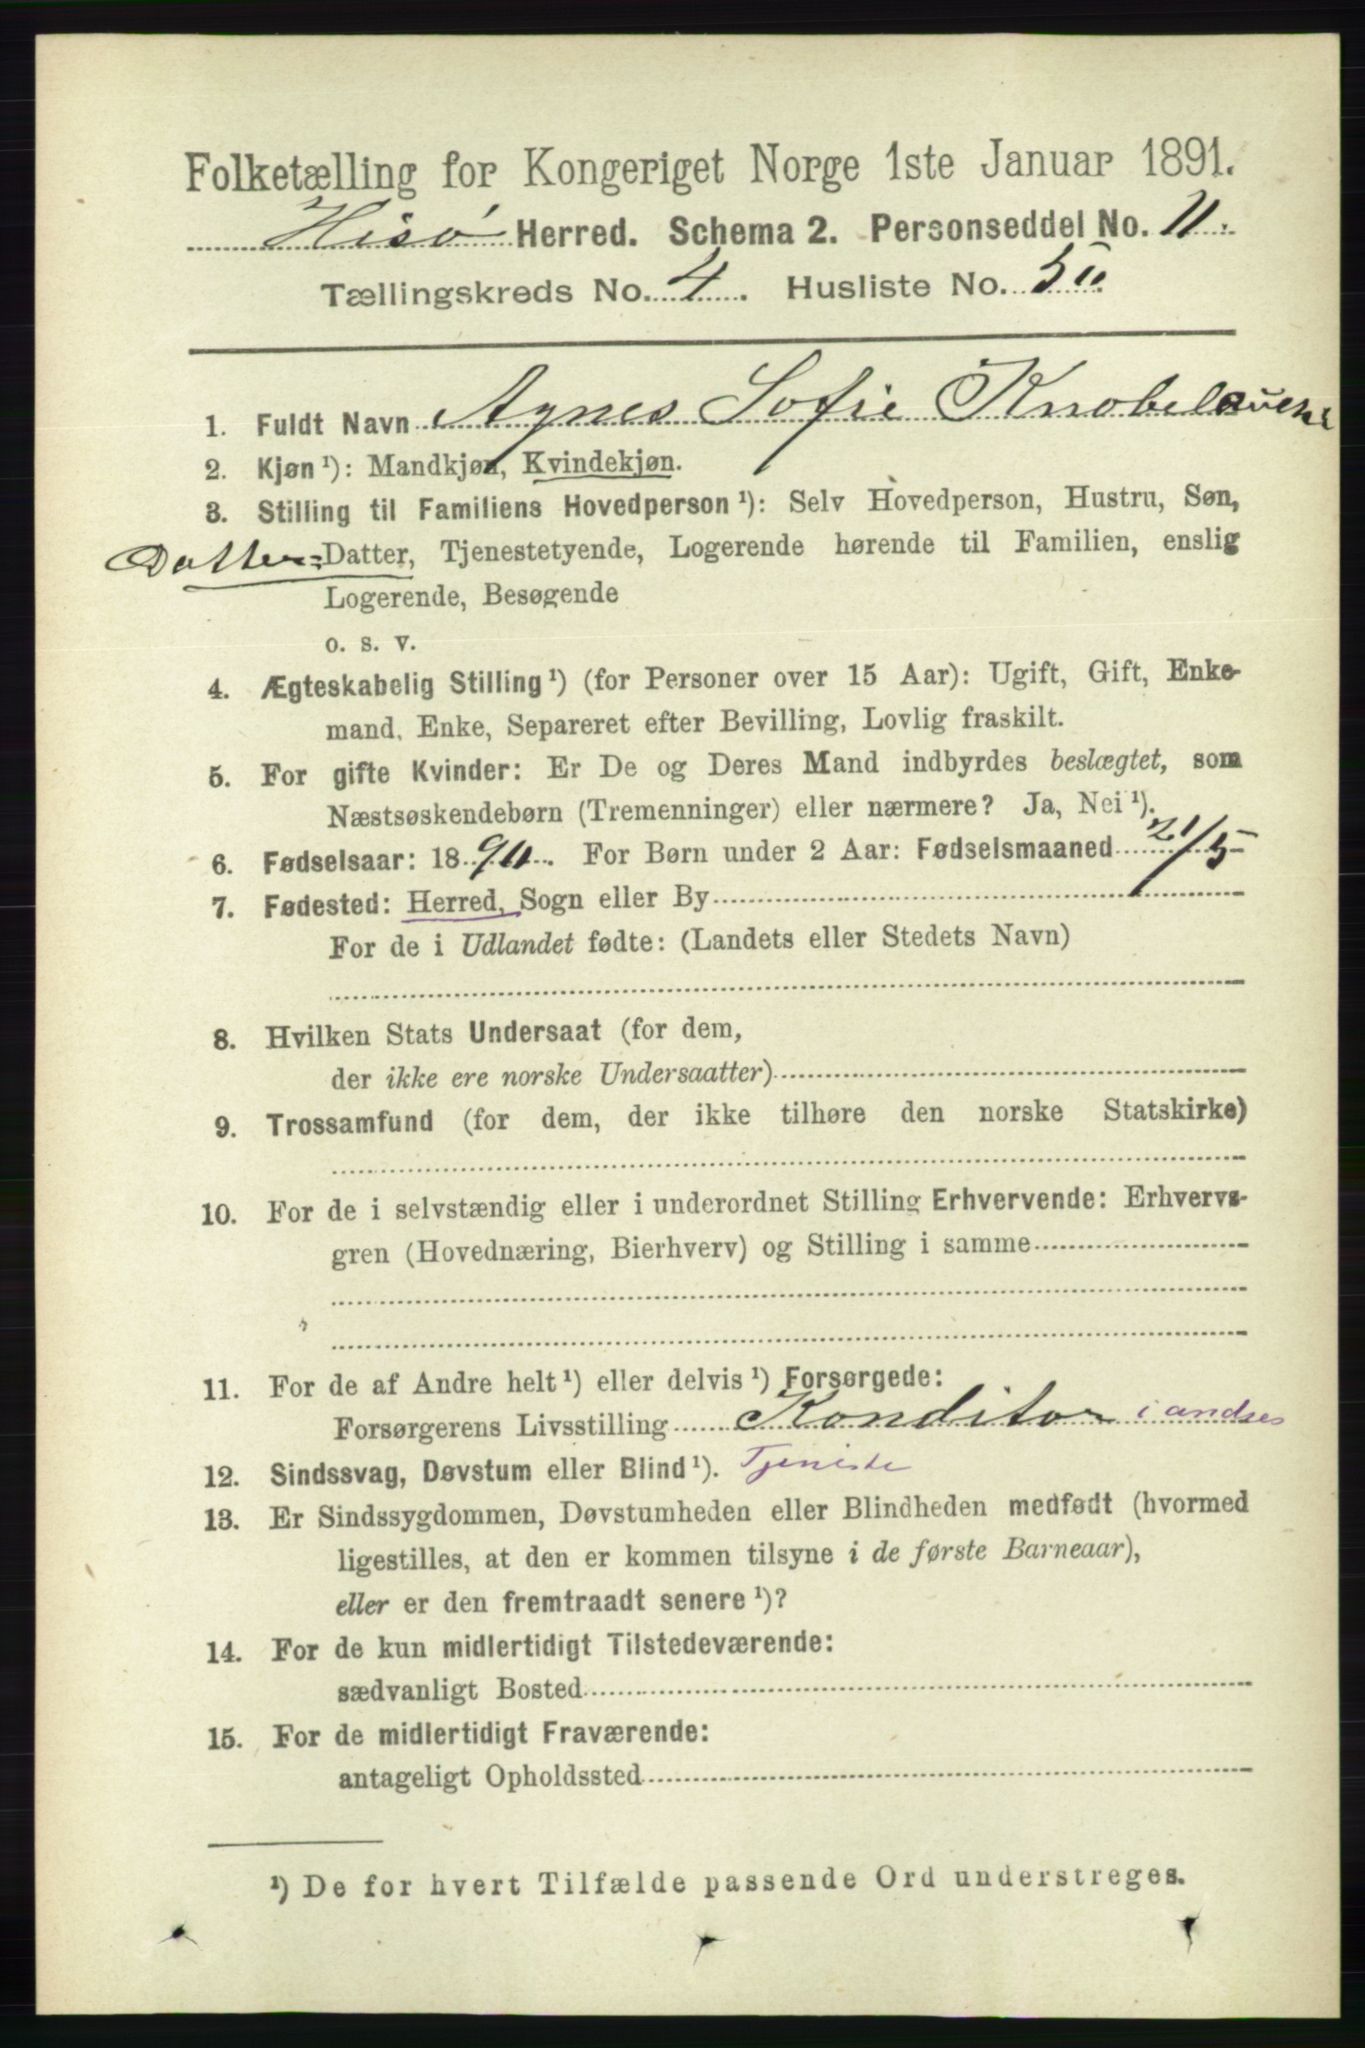 Folketælling for Kongeriget Norge 1ste Januar 1891.
Hisø Herred. Schema 2. Personseddel No. 11.
Tællingskreds No. 4. Husliste No. 50.
1. Fuldt Navn Agnes Sofie Knobelauch
2. Kjøn ¹): Mandkjøn, Kvindekjøn.
3. Stilling til Familiens Hovedperson ¹): Selv Hovedperson, Hustru, Søn,
Datter= Datter, Tjenestetyende, Logerende hørende til Familien, enslig
Logerende, Besøgende
o. s. v.
4. Ægteskabelig Stilling ¹) (for Personer over 15 Aar): Ugift, Gift, Enke-
mand, Enke, Separeret efter Bevilling, Lovlig fraskilt.
5. For gifte Kvinder: Er De og Deres Mand indbyrdes beslægtet, som
Næstsøskendebørn (Tremenninger) eller nærmere? Ja, Nei ¹).
6. Fødselsaar: 1890. For Børn under 2 Aar: Fødselsmaaned 21/5
7. Fødested: Herred, Sogn eller By
For de i Udlandet fødte: (Landets eller Stedets Navn)
8. Hvilken Stats Undersaat (for dem,
der ikke ere norske Undersaatter)
9. Trossamfund (for dem, der ikke tilhøre den norske Statskirke)
10. For de i selvstændig eller i underordnet Stilling Erhvervende: Erhvervs-
gren (Hovednæring, Bierhverv) og Stilling i samme
11. For de af Andre helt ¹) eller delvis ¹) Forsørgede:
Forsørgerens Livsstilling Konditor i andres
12. Sindssvag, Døvstum eller Blind ¹). Tjeniste
13. Er Sindssygdommen, Døvstumheden eller Blindheden medfødt (hvormed
ligestilles, at den er kommen tilsyne i de første Barneaar),
eller er den fremtraadt senere ¹)?
14. For de kun midlertidigt Tilstedeværende:
sædvanligt Bosted
15. For de midlertidigt Fraværende:
antageligt Opholdssted
¹) De for hvert Tilfælde passende Ord understreges.